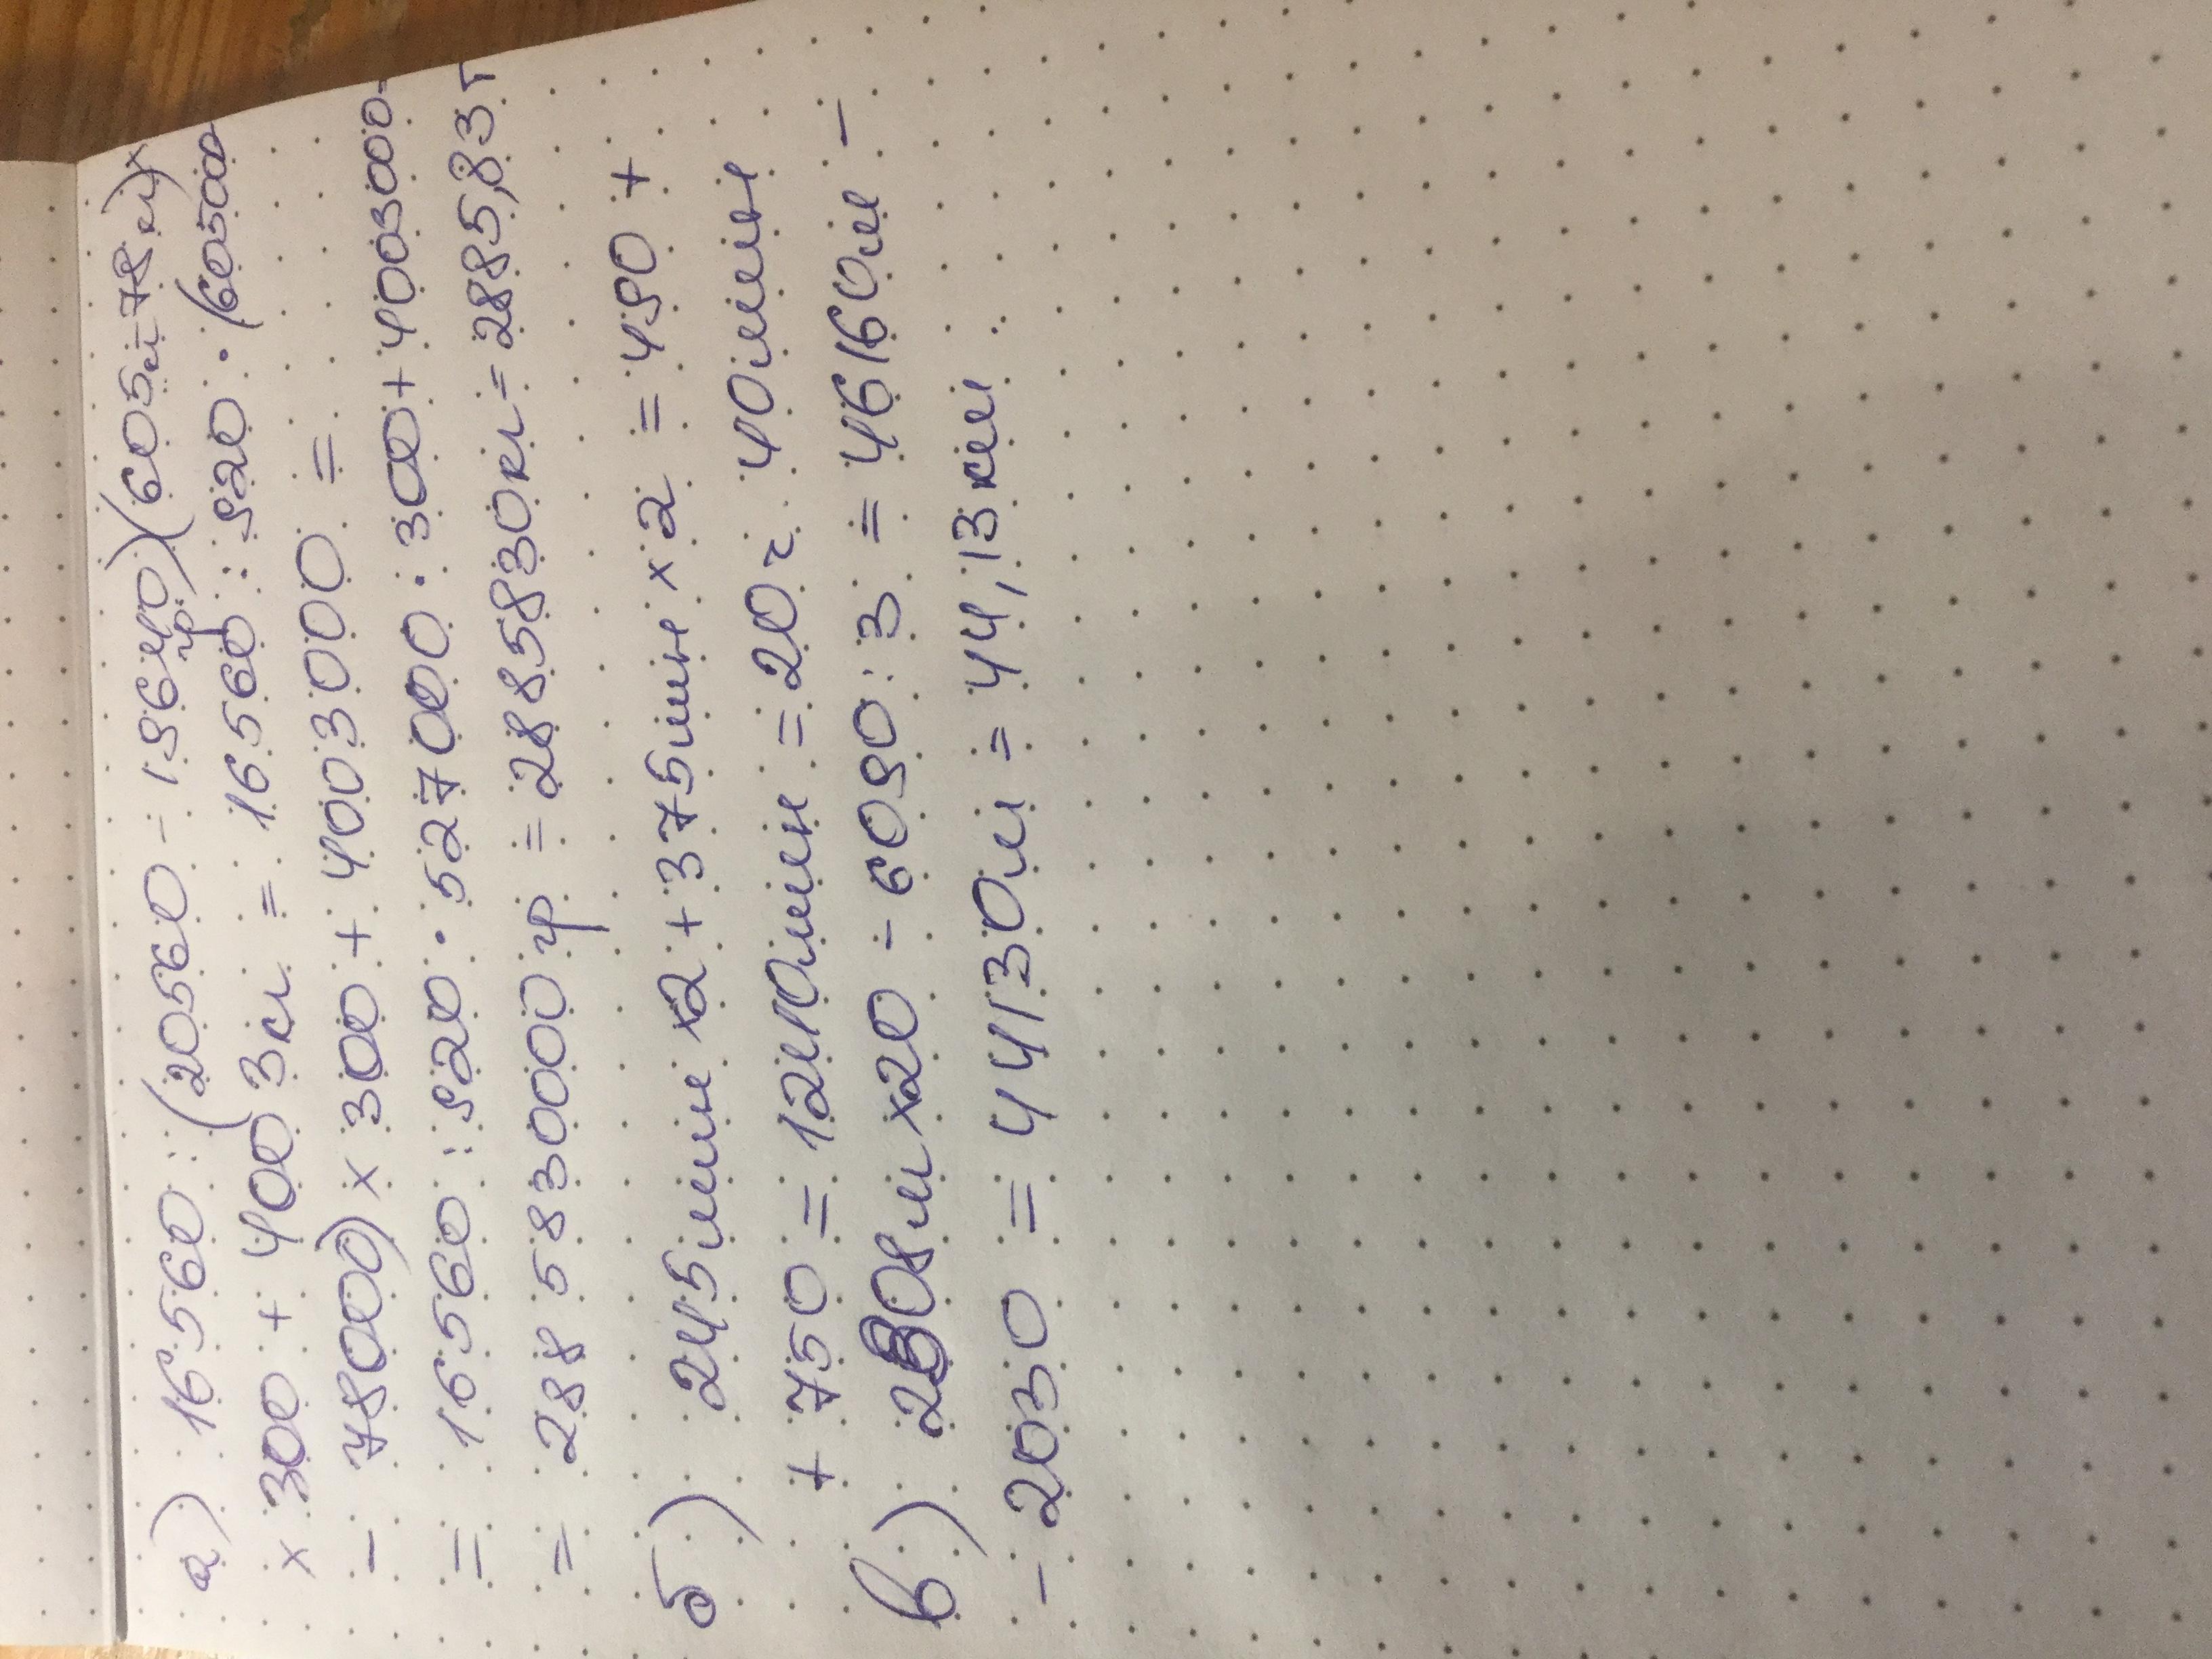 а) 16560 : (20560 - 196 гр)(605 кг - 78 кг) x
x 300 + 4003 кг = 16560 : 920 · (605000
- 78000) x 300 + 4003000 =
= 16560 : 920 · 527000 · 300 + 4003000
= 288 583 0000 гр = 2885830 кг = 2885,83 т
б) 245 мин x2 + 375 мин x2 = 490 +
+ 750 = 1240 мин = 20 г 40 мин
в) 2308 м x20 - 6090 : 3 = 46160 м -
- 2030 = 44130 м = 44,13 км